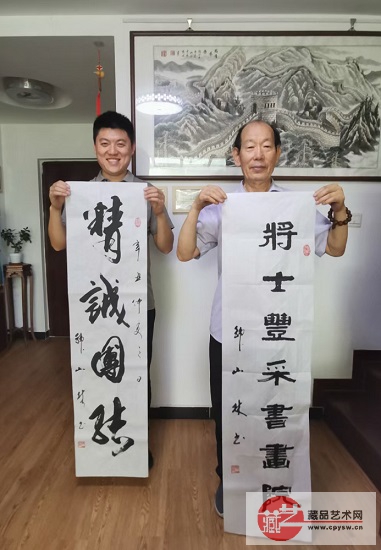 精誠團結
辛丑仲夏之
山林书
將士豐采書畫院
山林书
藏品艺术网
www.cpysw.cn